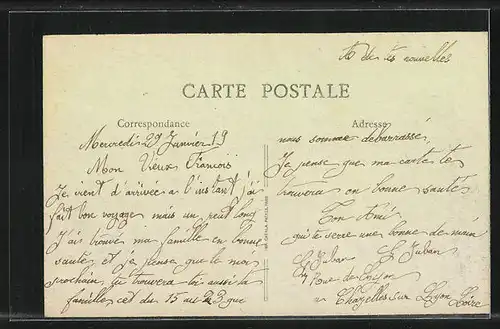 A de tes nouvelles
CARTE POSTALE
Correspondance
Mercredi 29 Janvier 19
Mon Vieux Francois
Je vient d'arrivee a l'instant j'ai
fait bon voyage mais un peut long
J'ais trouve ma famille en bonne
sante et je pense que le mois
prochain tu trouvera toi aussi ta
famille cet du 15 au 23 que
Adresse
nous somme debarrassé,
Je pense que ma carte te
trouvera en bonne sante
Ton Ami
qui te serre une bonne de main
G Juban G Juban
Rue de Lyon
a Chazelles sur Lyon Loire